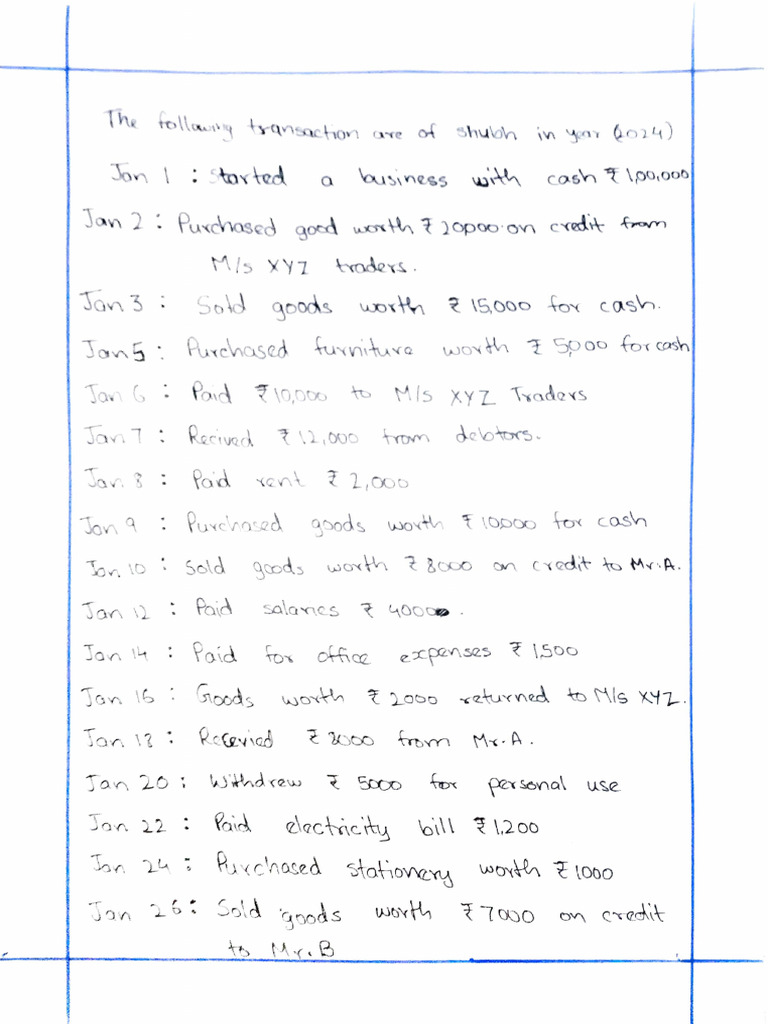 The following transaction are of shubh in year (2024)
Jan 1 : Started a business with cash ₹1,00,000
Jan 2 : Purchased good worth ₹20000 on credit from
M/s XYZ traders.
Jan 3 : Sold goods worth ₹15,000 for cash.
Jan 5 : Purchased furniture worth ₹5,000 for cash
Jan 6 : Paid ₹10,000 to M/s XYZ Traders
Jan 7 : Recived ₹12,000 from debtors.
Jan 8 : Paid rent ₹2,000
Jan 9 : Purchased goods worth ₹10,000 for cash
Jan 10 : Sold goods worth ₹8000 on credit to Mr.A.
Jan 12 : Paid salaries ₹4000.
Jan 14 : Paid for office expenses ₹1,500
Jan 16 : Goods worth ₹2000 returned to M/s XYZ.
Jan 18 : Recevied ₹8000 from Mr.A.
Jan 20 : Withdrew ₹5000 for personal use
Jan 22 : Paid electricity bill ₹1,200
Jan 24 : Purchased stationery worth ₹1000
Jan 26 : Sold goods worth ₹7000 on credit
to Mr.B